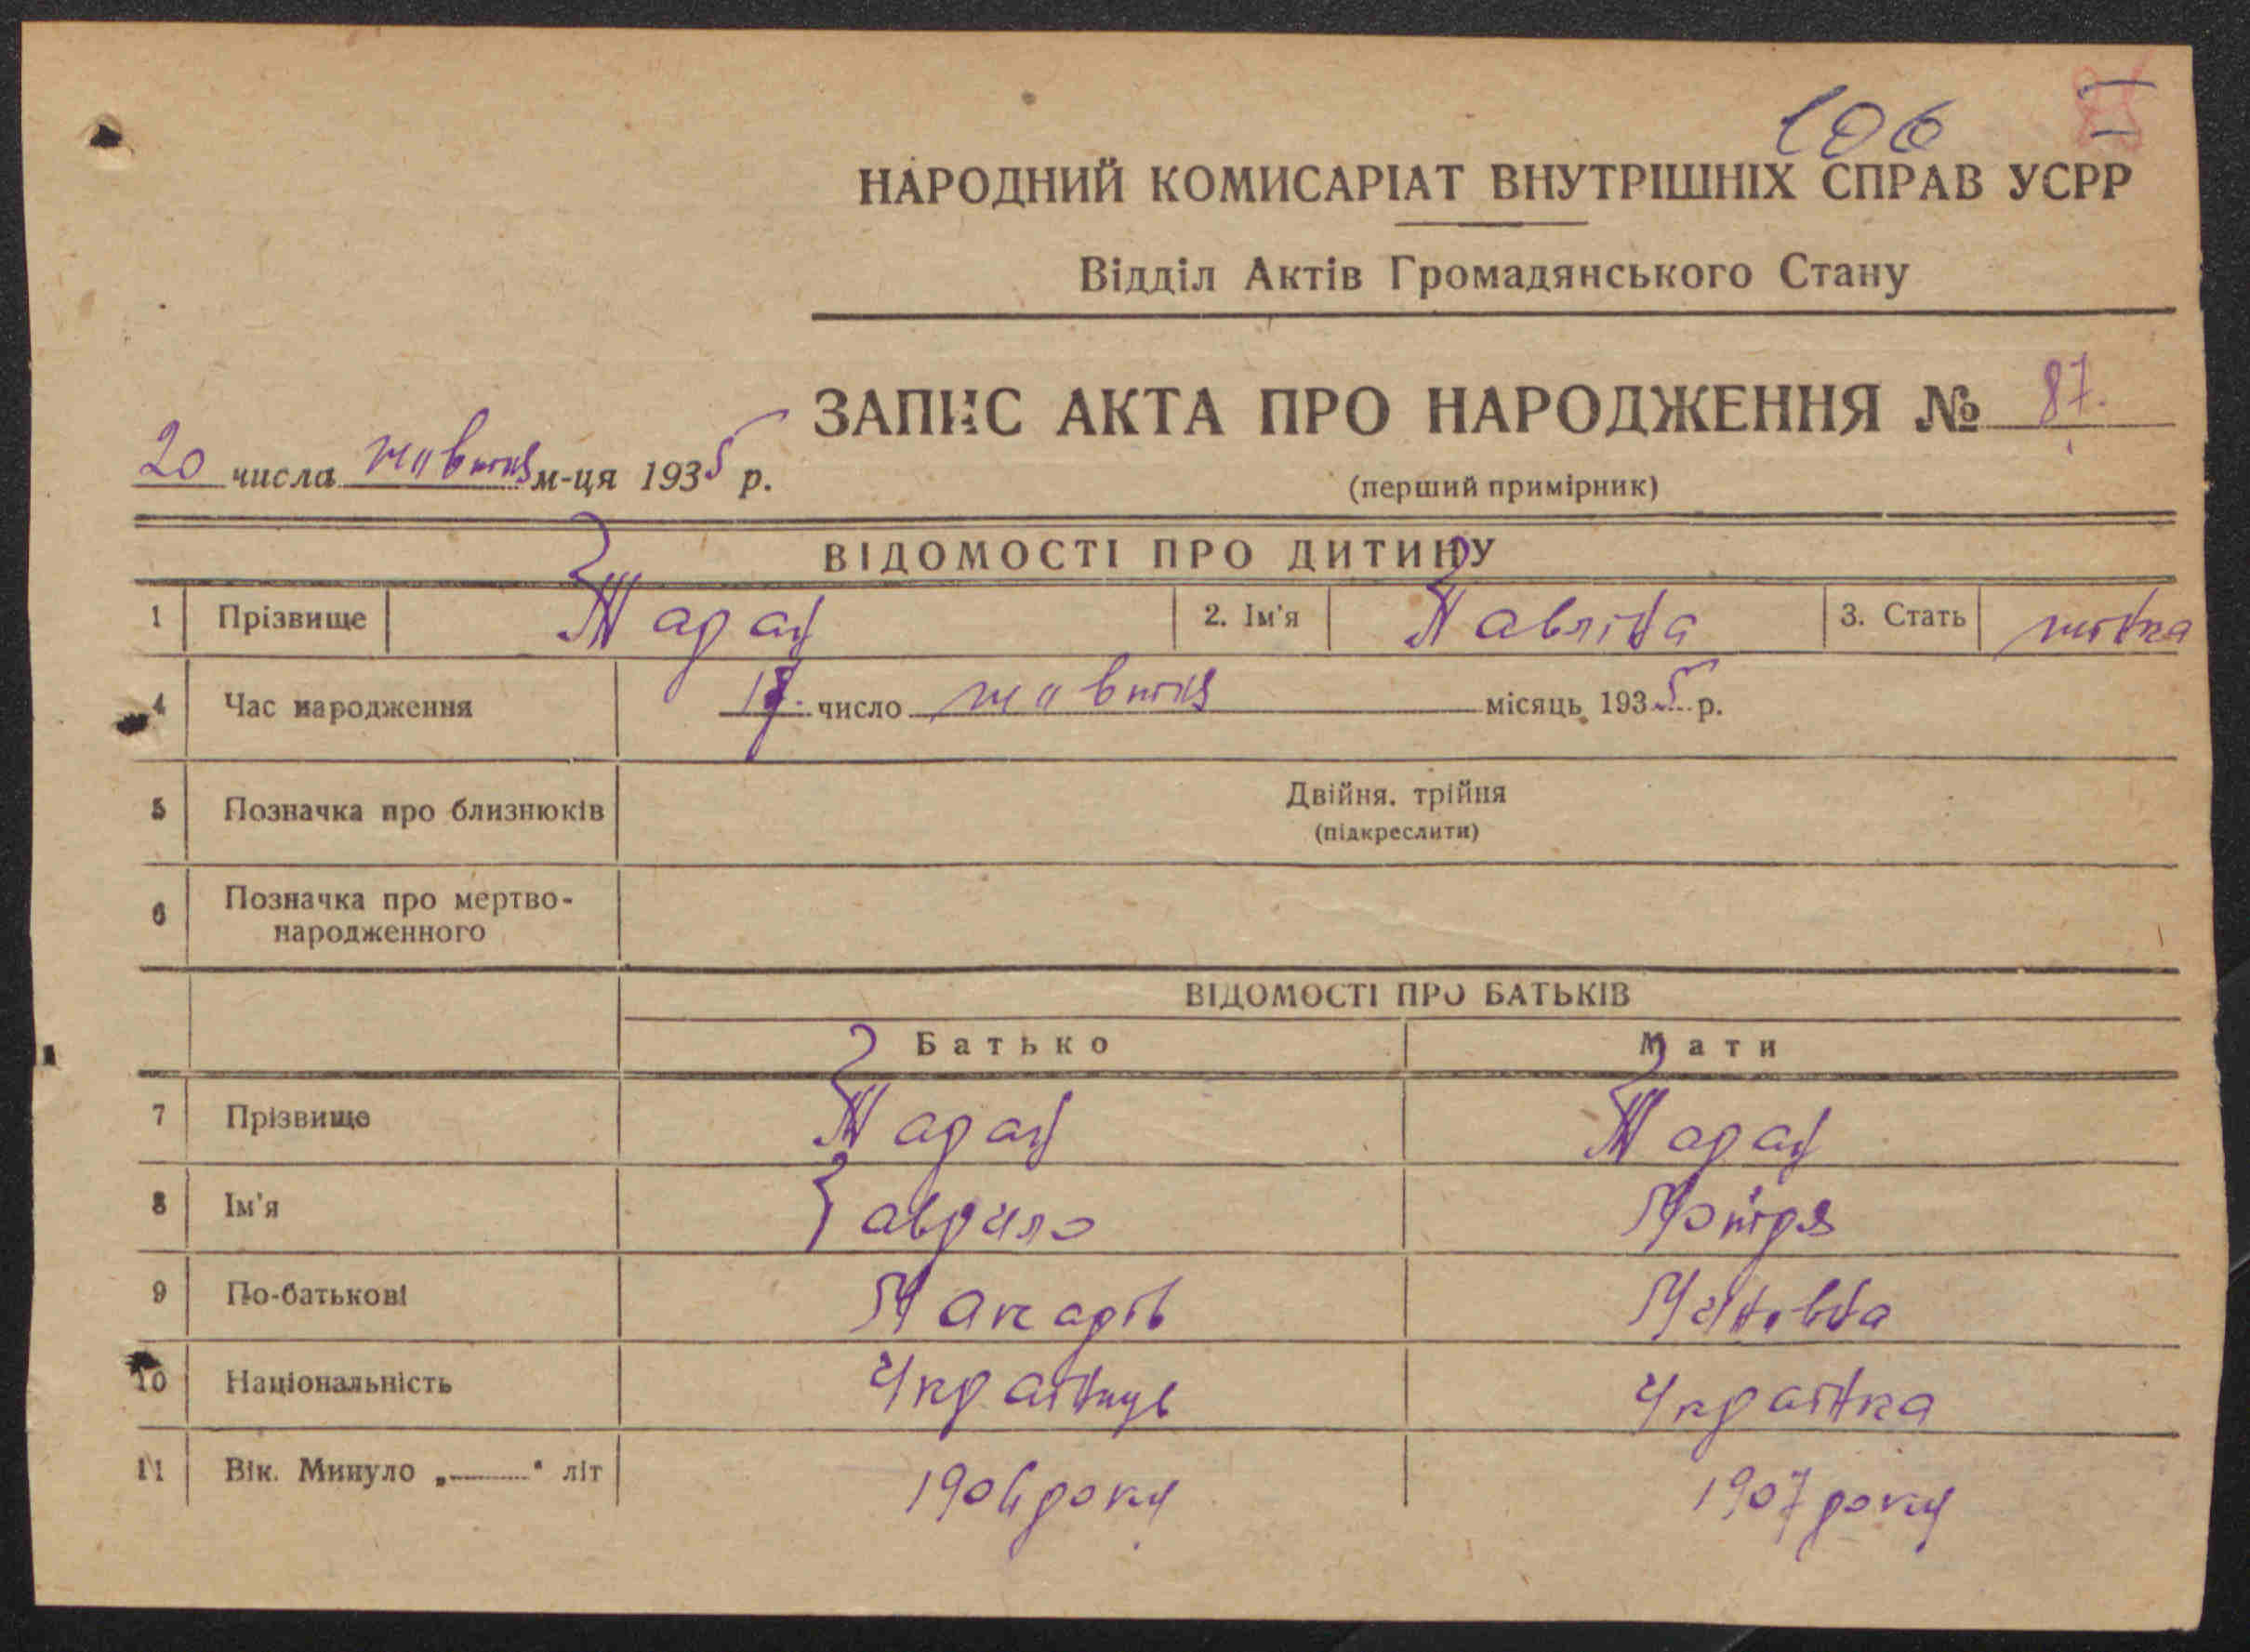 106
НАРОДНИЙ КОМИСАРІАТ ВНУТРІШНІХ СПРАВ УСРР
Відділ Актів Громадянського Стану
ЗАПИС АКТА ПРО НАРОДЖЕННЯ № 87.
20 числа жовтня м-ця 1935 р.
(перший примірник)
ВІДОМОСТІ ПРО ДИТИНУ
1 Прізвище 2. Ім'я Павліна 3. Стать жінка
4 Час народження число жовтня місяць 1935 р.
5 Позначка про близнюків Двійня, трійня
(підкреслити)
6 Позначка про мертво-
народженного
ВІДОМОСТІ ПРО БАТЬКІВ
Батько Мати
7 Прізвище
8 Ім'я Гаврило Мотря
9 По-батькові Макарів
10 Національність Українець Українка
11 Вік. Минуло „———“ літ 1906 року 1907 року